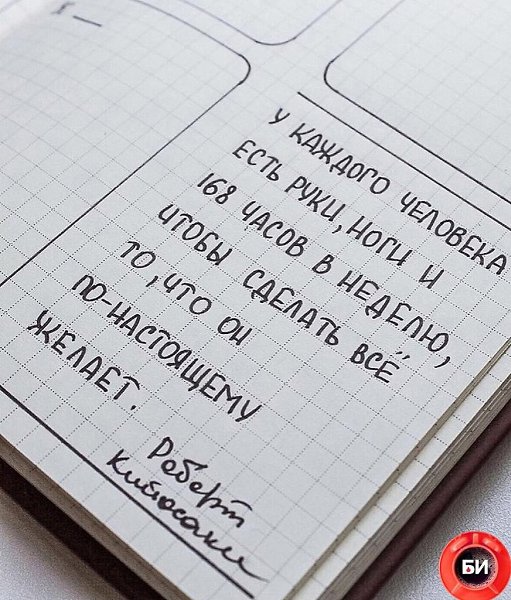 У КАЖДОГО ЧЕЛОВЕКА
ЕСТЬ РУКИ, НОГИ И
168 ЧАСОВ В НЕДЕЛЮ,
ЧТОБЫ СДЕЛАТЬ ВСЁ
ТО, ЧТО ОН
ПО-НАСТОЯЩЕМУ
ЖЕЛАЕТ.
Роберт
Кийосаки
БИ